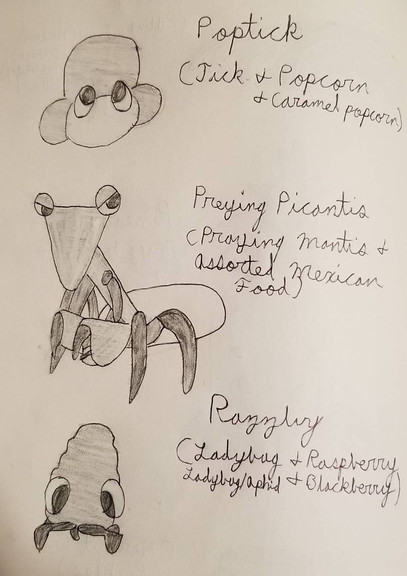 Poptick
(Tick & Popcorn
& Caramel popcorn)
Preying Picantis
(Praying Mantis &
assorted Mexican
Food)
Razzlvy
(Ladybug & Raspberry
Ladybug/aphid & Blackberry)